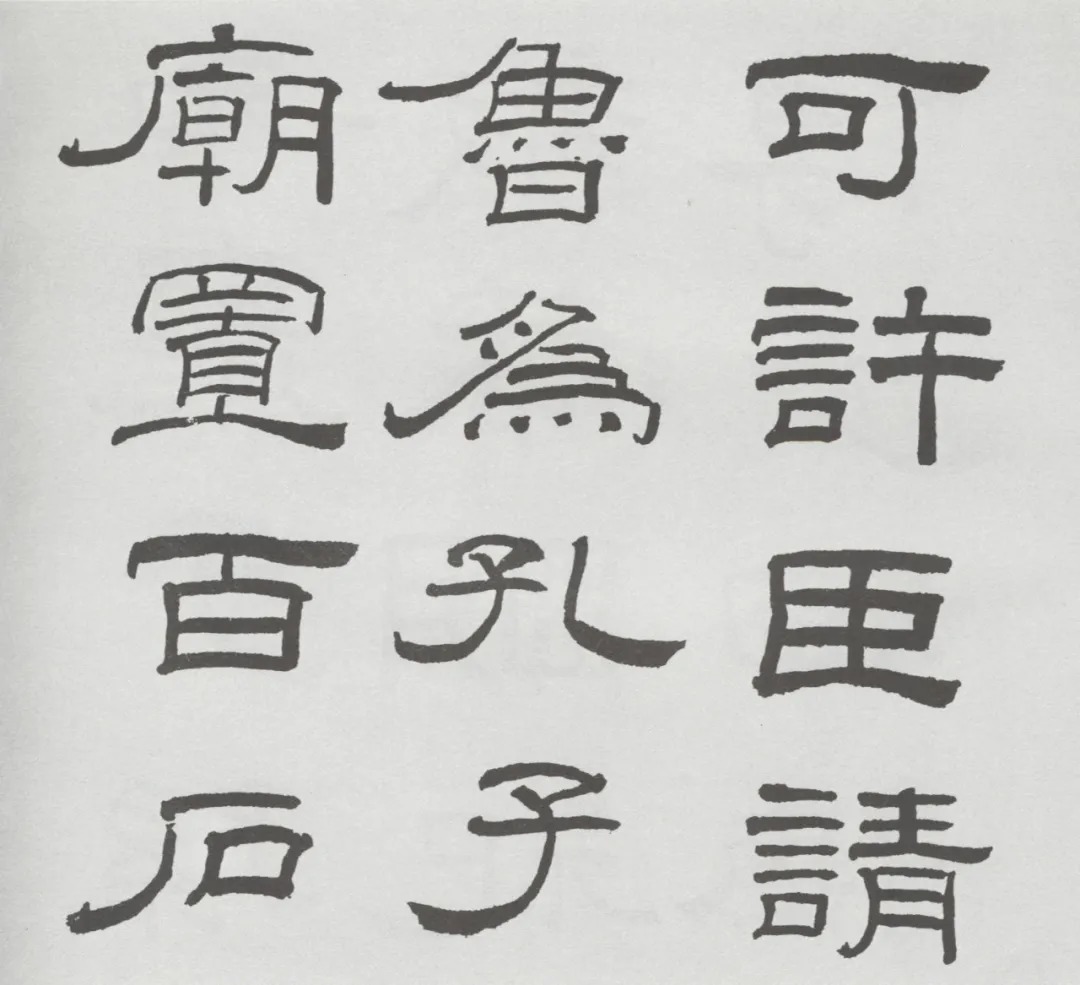 可許臣請
魯為孔子
廟置百石